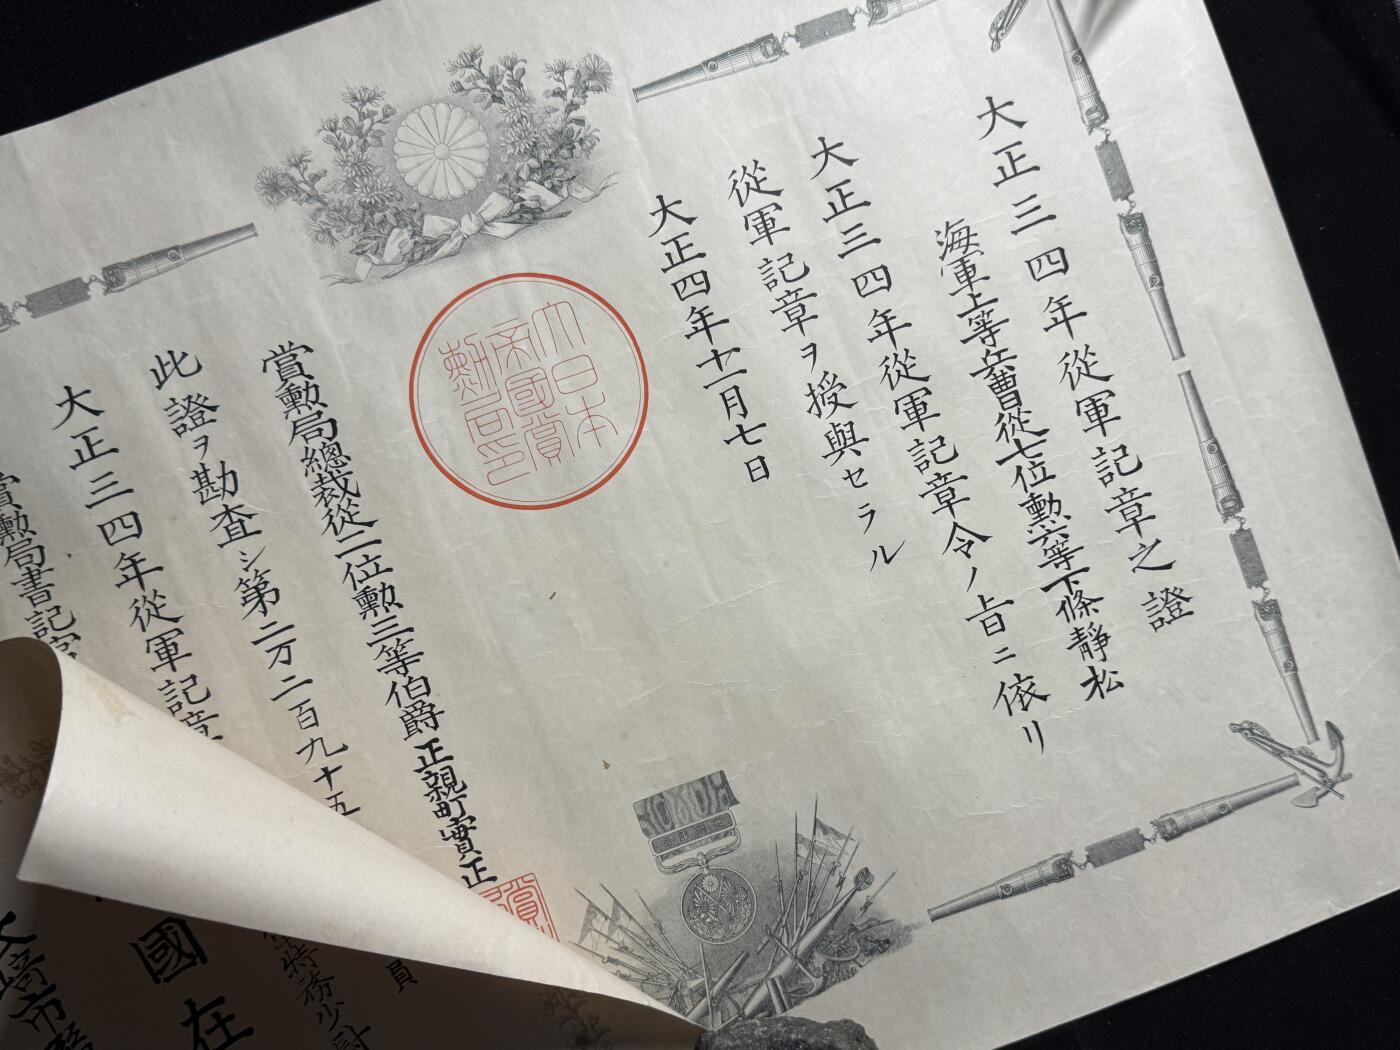 大正三四年從軍記章之證
海軍上等兵曹從七位勲六等下條靜松
大正三四年從軍記章令ノ旨ニ依リ
從軍記章ヲ授與セラル
大正四年十一月七日
大日本
帝國賞
勲局印
賞勲局總裁從二位勲三等伯爵正親町實正
此證ヲ勘査シ第二万二百九十五
大正三四年從軍記章
賞勲局書記官
員
特務少尉
國在
市